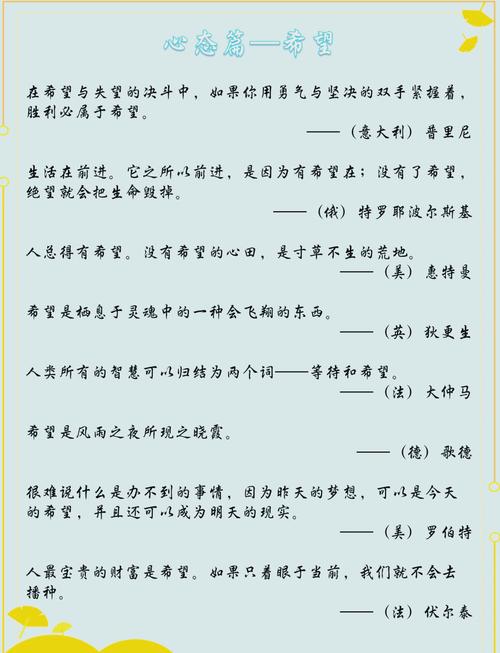 心态篇—希望
在希望与失望的决斗中，如果你用勇气与坚决的双手紧握着，
胜利必属于希望。
——（意大利）普里尼
生活在前进。它之所以前进，是因为有希望在；没有了希望，
绝望就会把生命毁掉。
——（俄）特罗耶波尔斯基
人总得有希望。没有希望的心田，是寸草不生的荒地。
——（美）惠特曼
希望是栖息于灵魂中的一种会飞翔的东西。
——（英）狄更生
人类所有的智慧可以归结为两个词——等待和希望。
——（法）大仲马
希望是风雨之夜所现之晓霞。
——（德）歌德
很难说什么是办不到的事情，因为昨天的梦想，可以是今天
的希望，并且还可以成为明天的现实。
——（美）罗伯特
人最宝贵的财富是希望。如果只着眼于当前，我们就不会去
播种。
——（法）伏尔泰